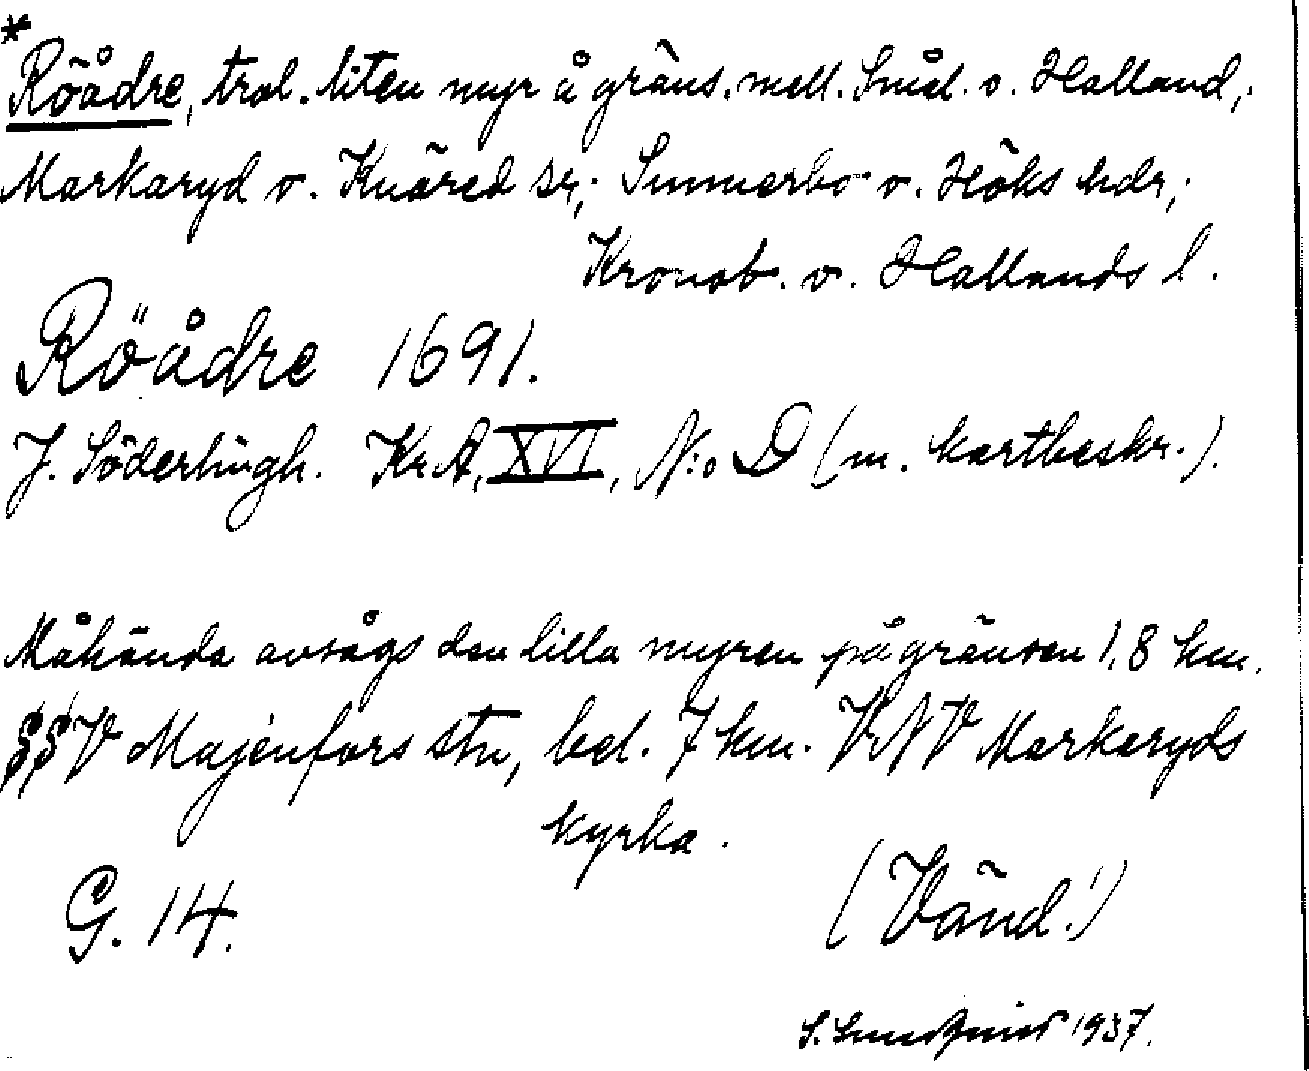 * Röådre, trol. liten myr å gräns. mell. Smål. o. Halland,;
Markaryd o. Knäred sr,; Sunnerbo o. Höks hdr,;
Kronob. o. Hallands l.
Röådre 1691.
J. Söderlingh. Kr.A, XVI, N:o D (m. kartbeskr.).
Måhända avsågs den lilla myren på gränsen 1,8 km.
V Majenfors stn, bel. 7 km. VNV Markaryds
kyrka.
G. 14.
(Vänd!)
S. Lundquist 1937.